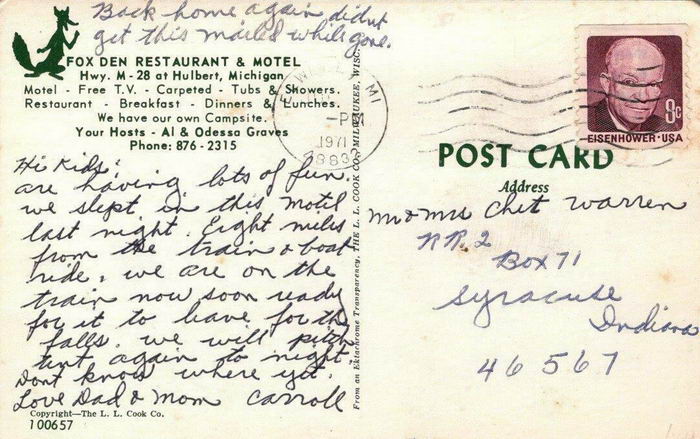 Back home again didnt
get this mailed while gone.
FOX DEN RESTAURANT & MOTEL
Hwy. M-28 at Hulbert, Michigan
Motel - Free T.V. - Carpeted - Tubs & Showers.
Restaurant - Breakfast - Dinners & Lunches.
We have our own Campsite.
Your Hosts - Al & Odessa Graves
Phone: 876-2315
Hi Kids:
are having lots of fun.
we slept in this motil
last night. Eight miles
from the train & boat
ride. we are on the
train now soon ready
for it to leave for the
falls. we will pitch
tent again to night.
Dont know where yet.
Love Dad & Mom Carroll
Copyright—The L. L. Cook Co.
100657
From an Ektachrome Transparency, THE L. L. COOK CO., MILWAUKEE, WISC.
MI
-PM
1971
EISENHOWER·USA
8c
POST CARD
Address
Mr & Mrs Chet Warren
RR. 2
Box 71
Syracuse
Indiana
46567